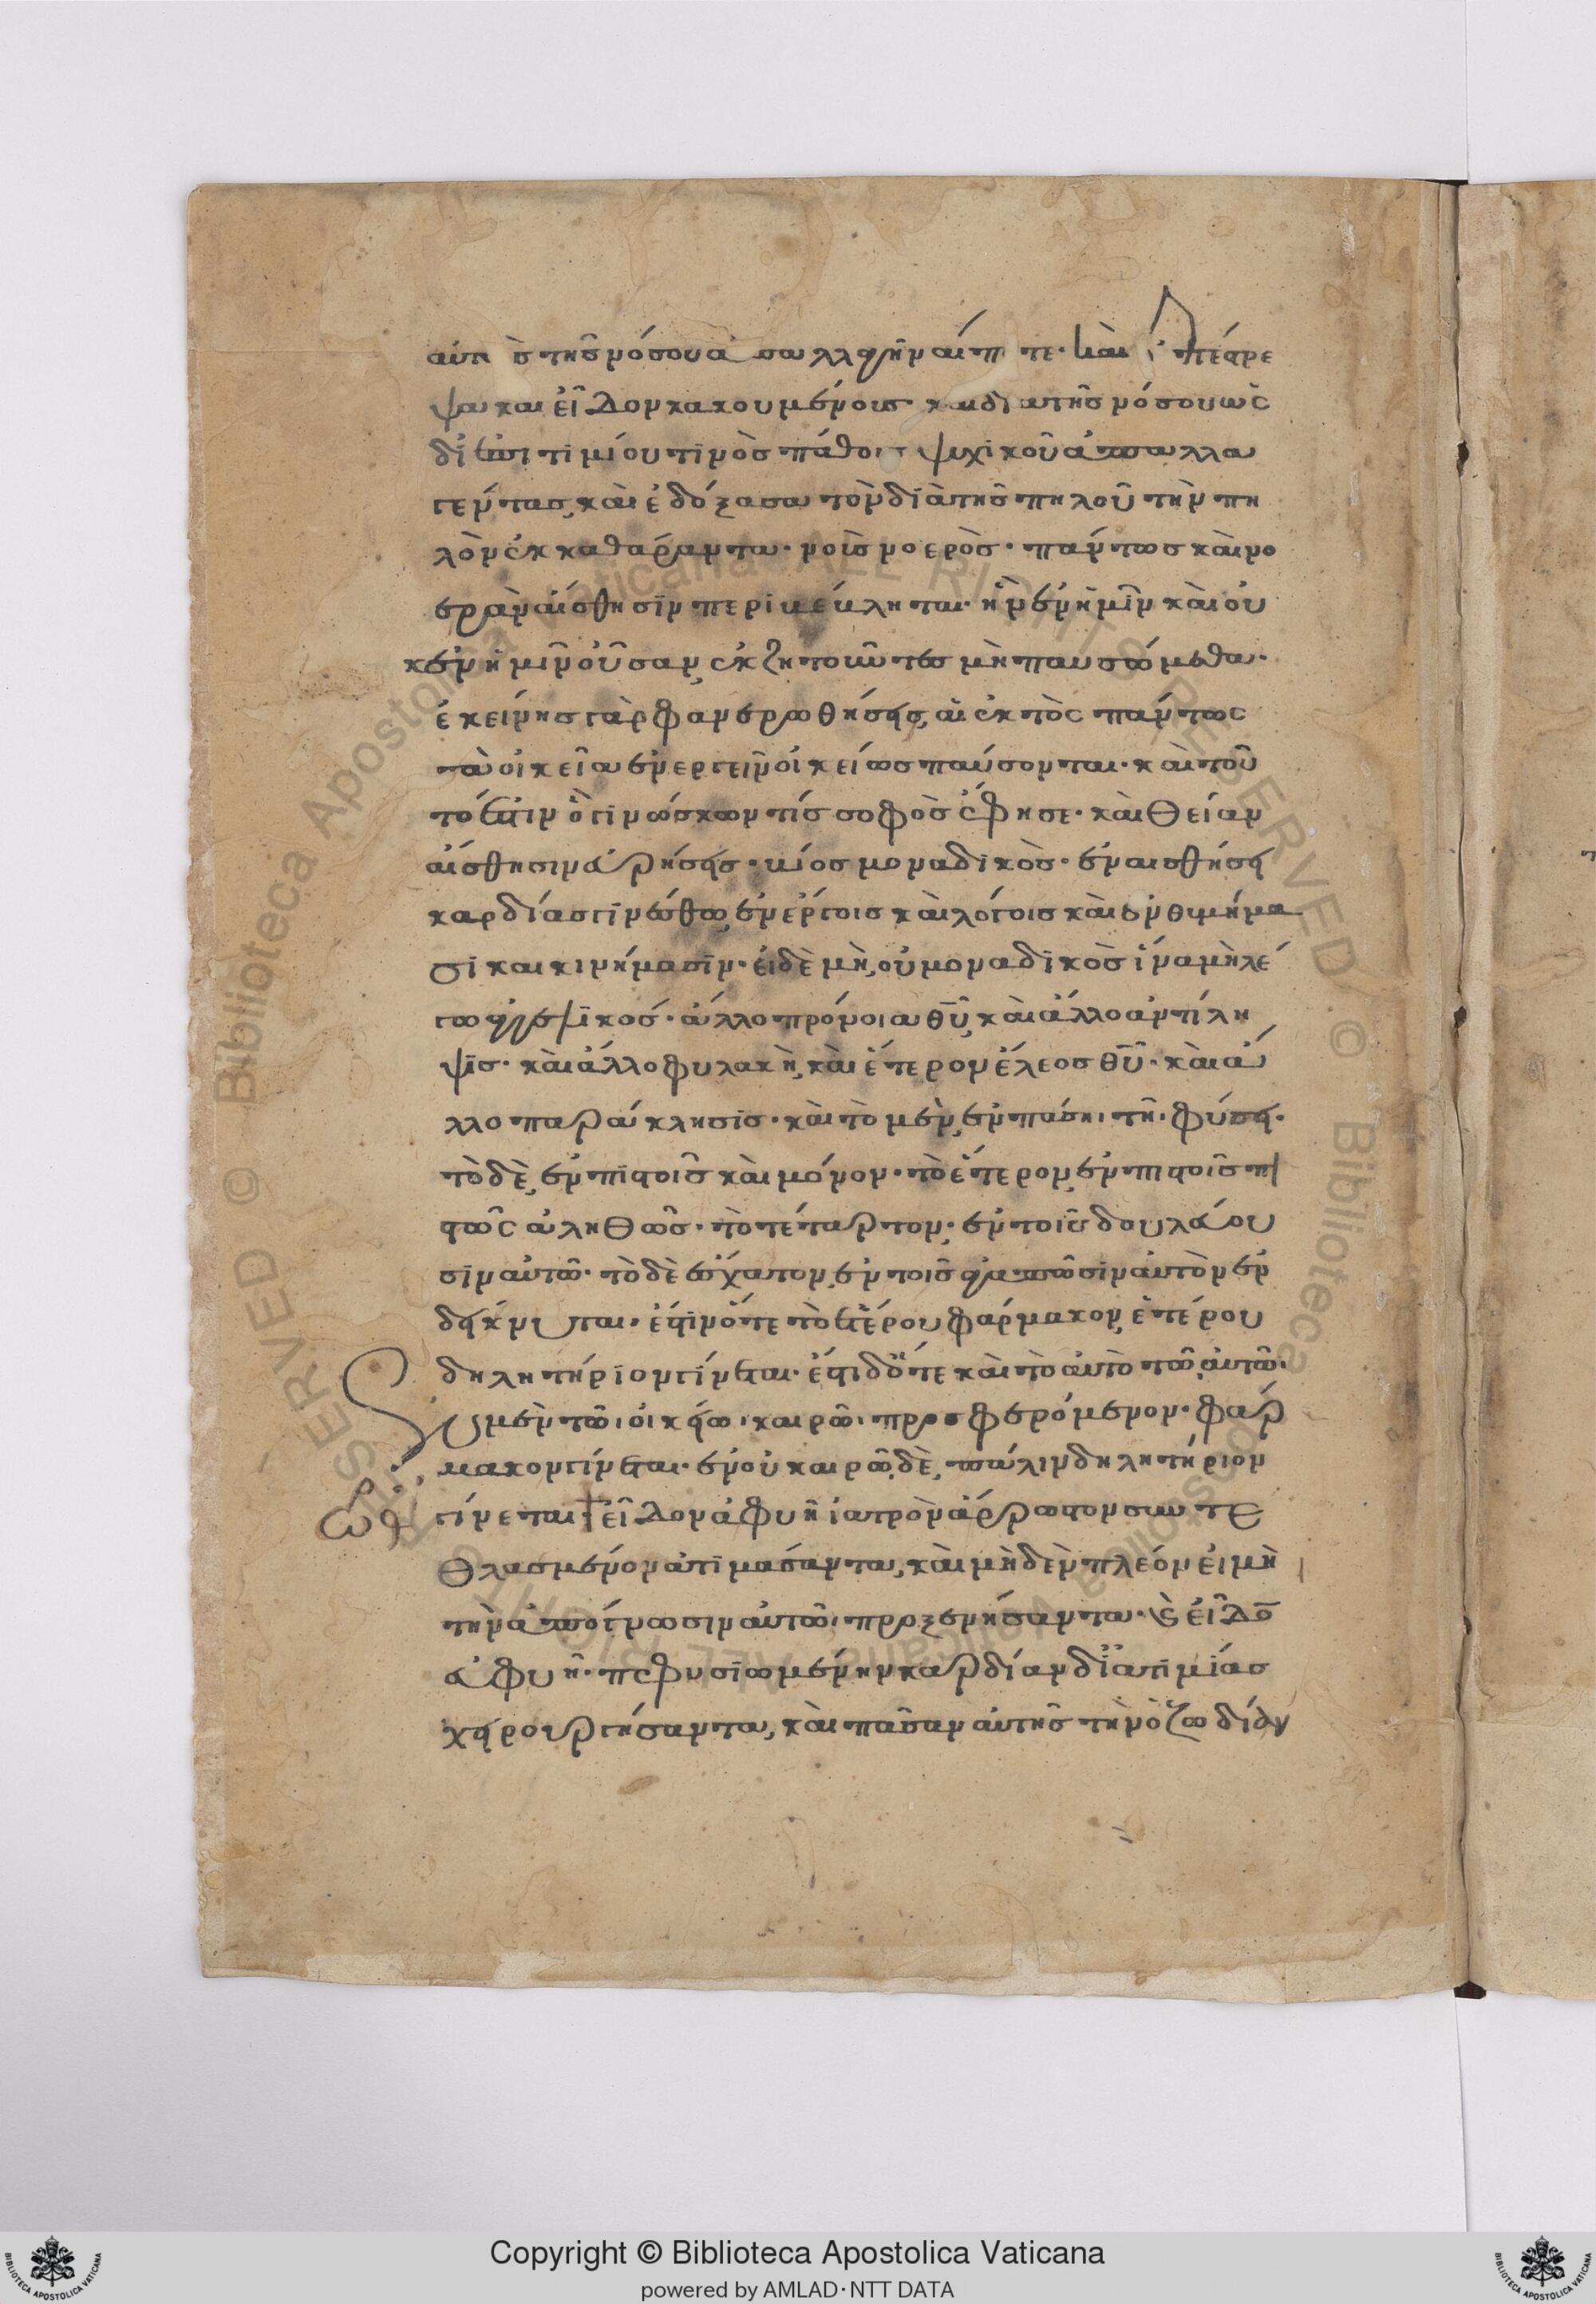 αὐτ ὸς τῆς νόσου ἀπαλλαγῆναι π τε· καὶ ὑπέστρε
ψα καὶ εἶδον κακουμένους· καὶ διὰ τῆς νόσου ὡς
δι ἐπιτιμίου τινὸς πάθους ψυχικοῦ ἀπαλλα
γέντας, καὶ ἐδόξασα τὸν διὰ τῆς πηλοῦ τὴν πη
λὸν ἐκκαθάραντα· νοῦς νοερὸς· πάντως καὶ νο
ερὰν αἴσθησιν περικέκληται· ἣν ἐν ἡμῖν καὶ οὐ
κ ἐν ἡμῖν οὖσαν, ἐκζητοῦντες μὴ παυσώμεθα·
ἐκείνης γὰρ φανερωθήσης, αἱ ἐκτὸς πάντως
τὰ οἰκεῖα ἐνεργεῖν οἰκείως παύσονται· καὶ τοῦ
τό ἐστιν ὃ γινώσκων τίς σοφὸς ἔφησε· καὶ θείαν
αἴσθησιν εὑρήσεις· βίος μοναδικὸς· ἐν αἰσθήσει
καρδίας γινέσθω, ἐν ἔργοις καὶ λόγοις καὶ ἐνθυμήμα
σι καὶ κινήμασιν· εἰ δὲ μὴ, οὐ μοναδικὸς ἵνα μὴ λέ
γω ἀγγελικός· ἄλλο πρόνοια θῦ, καὶ ἄλλο ἀντίλη
ψις· καὶ ἄλλο φυλακὴ, καὶ ἕτερον ἔλεος θῦ· καὶ ἄ
λλο παράκλησις· καὶ τὸ μὲν, ἐν πάσῃ τῇ φύσει·
τὸ δὲ, ἐν πιστοῖς καὶ μόνον· τὸ ἕτερον, ἐν πιστοῖς πι
στῶς ἀληθῶς· τὸ τέταρτον, ἐν τοῖς δουλεύου
σιν αὐτῶ· τὸ δὲ ἔσχατον, ἐν τοῖς ἀγαπῶσιν αὐτὸν ἐν
δείκνυται· ἔστιν ὅτε τὸ ἑτέρου φάρμακον, ἑτέρου
δηλητήριον γίνεται· ἔστι δ ὅτε καὶ τὸ αὐτὸ τῶ αὐτῶ·
ἐν μὲν τῶι οἰκείω καιρῶι προσφερόμενον· φάρ
μακον γίνεται· ἐν οὐ καιρῶ, δὲ, πάλιν δηλητήριον
γίνεται· εἶδον ἀφυῆ ἰατρὸν ἄρρωστον συντε
θλασμένον ἀτιμάσαντα, καὶ μηδὲν πλέον εἰ μὴ
τὴν ἀπόγνωσιν αὐτῶι προξενήσαντα· καὶ εἶδον
εὐφυῆ· πεφυσιωμένην καρδίαν δι ἀτιμίας
χειρουργήσαντα, καὶ πᾶσαν αὐτῆς τὴν ὀζωδίαν
ὡρ